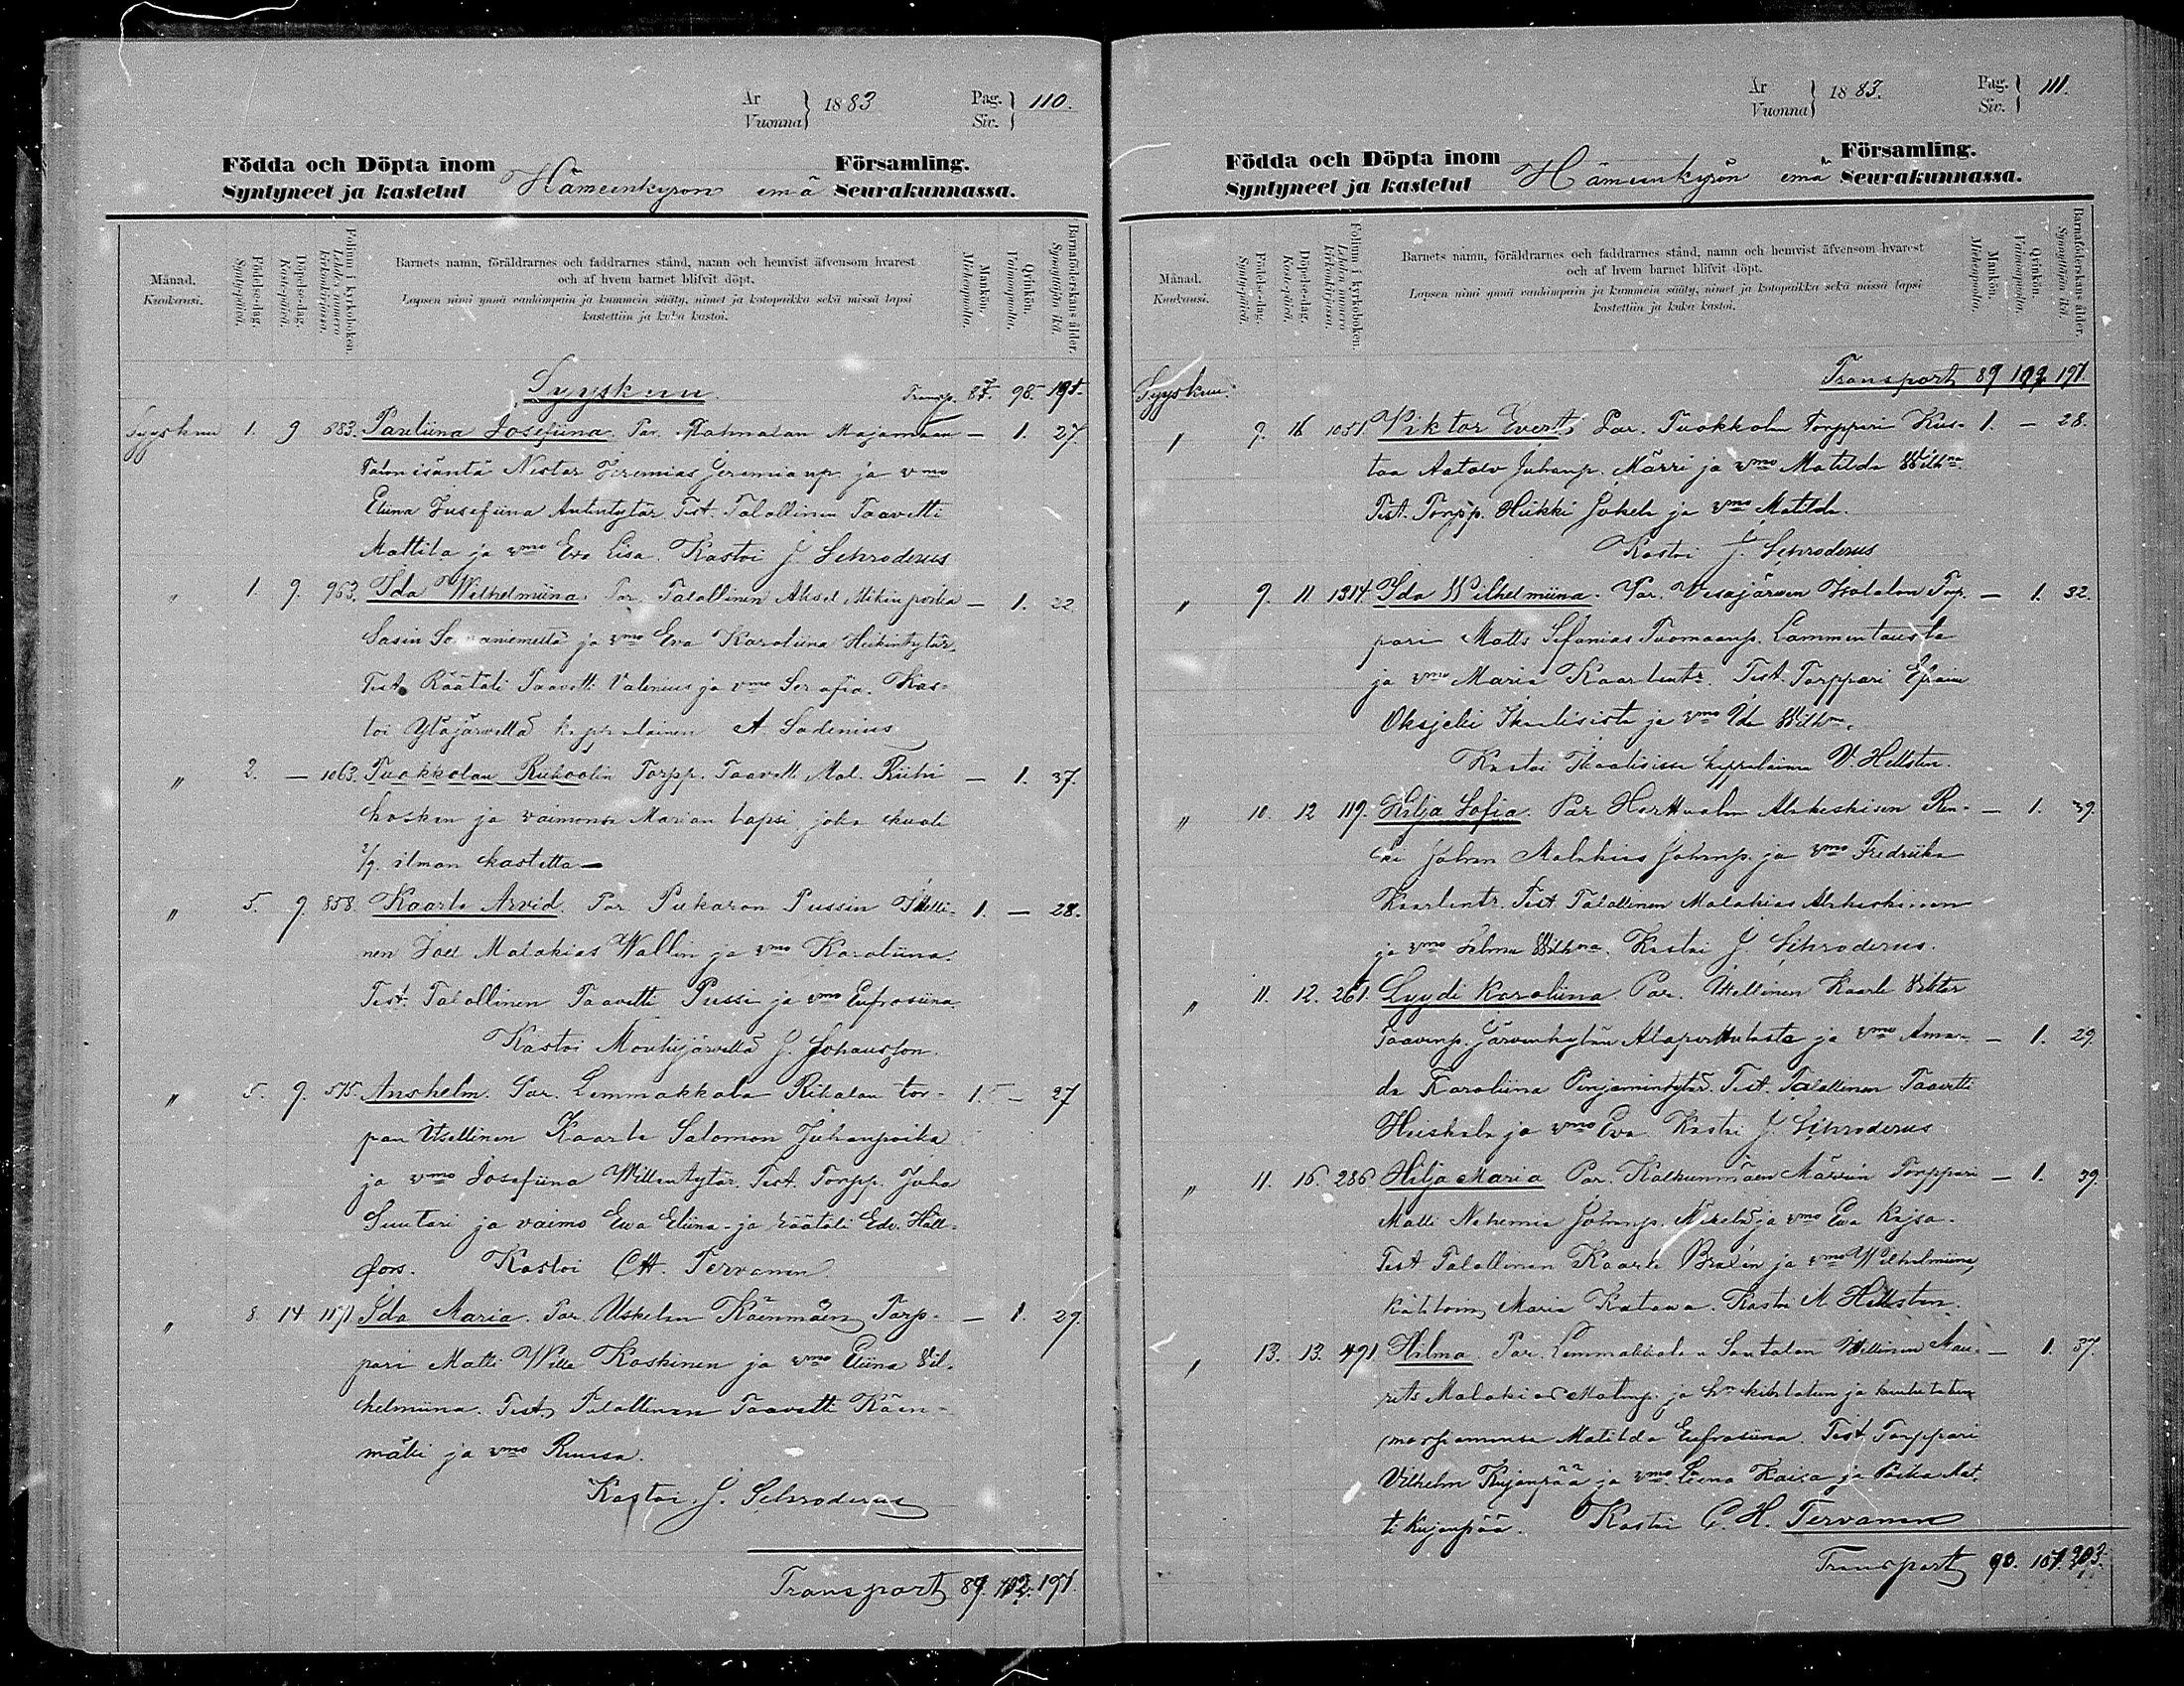 År
Vuonna } 1883
Pag.
Siv. } 110.
Födda och Döpta inom Församling.
Syntyneet ja kastetut Hämeenkyrön emä Seurakunnassa.
Månad.
Kuukausi.
Födelse-dag.
Syntypäivä.
Döpelse-dag.
Kastepäivä.
Folium i kyrkoboken.
Lehden numero kirkonkirjassa.
Barnets namn, föräldrarnes och faddrarnes stånd, namn och hemvist äfvensom hvarest
och af hvem barnet blifvit döpt.
Lapsen nimi ynnä vanhimpain ja kummein sääty, nimet ja kotopaikka sekä missä lapsi
kastettiin ja kuka kastoi.
Mankön.
Miehenpuolia.
Qvinkön.
Vaimonpuolia.
Barnaföderskans ålder.
Synnyttäjän ikä.
Syyskuu. Transp. 87. 98.
Syyskuu 1. 9 583. Pauliina Josefiina. Par. Mahnalan Majamaan — 1. 27
Talon isäntä Nestor Jeremias Jeremianp. ja vmo
Eliina Jusefiina Antintytär. Test. Talollinen Taavetti
Mattila ja vmo Eva Lisa. Kastoi J. Schroderus
" 1. 9. 963. Ida Wilhelmiina. Par. Talollinen Aksel Mikinpoika — 1. 22.
Sasin ja vmo Eva Karoliina Heikintytär.
Test. Räätäli Taavetti Valenius ja vmo Serafia. Kas-
toi Ylöjärvellä kappalainen A. Sadenius
" 2. — 1063. Tuokkolan Torpp. Taavetti Mal. — 1. 37.
kosken ja vaimonsa Marian lapsi, joka kuoli
2/9. ilman kastetta —
" 5. 9. 858. Kaarlo Arvid. Par. Pukaron Pussin Itselli- 1. — 28.
nen Joel Malakias Wallin ja vmo Karoliina.
Test. Talollinen Taavetti Pussi ja vmo Eufrosiina
Kastoi Mouhijärvellä J. Johansson.
" 5. 9. 575. Anshelm. Par. Lemmakkala Rikalan tor- 1. — 27
pan Itsellinen Kaarlo Salomon Juhanpoika
ja vmo Josefiina Willentytär. Test. Torpp. Juha
Suutari ja vaimo Eva Eliina ja räätäli Edv. Häll-
fors. Kastoi C.H. Tervanen.
" 8. 14 1171 Ida Maria. Par. Uskelan Käenmäen Torp- — 1. 29.
pari Matti Wille Koskinen ja vmo Eliina Vil-
helmiina. Test. Talollinen Taavetti Käen-
mäki ja vmo Ruusa.
Kastoi J. Schroderus
Transport 89. 102. 191.
År
Vuonna } 1883.
Pag.
Siv. } 111.
Födda och Döpta inom Församling.
Syntyneet ja kastetut Hämeenkyrön emä Seurakunnassa.
Månad.
Kuukausi.
Födelse-dag.
Syntypäivä.
Döpelse-dag.
Kastepäivä.
Folium i kyrkoboken.
Lehden numero kirkonkirjassa.
Barnets namn, föräldrarnes och faddrarnes stånd, namn och hemvist äfvensom hvarest
och af hvem barnet blifvit döpt.
Lapsen nimi ynnä vanhimpain ja kummein sääty, nimet ja kotopaikka sekä missä lapsi
kastettiin ja kuka kastoi.
Mankön.
Miehenpuolia.
Qvinkön.
Vaimonpuolia.
Barnaföderskans ålder.
Synnyttäjän ikä.
Syyskuu. Transport 89 102 191.
9. 16 1051. Viktor Evert. Par. Tuokkolan Torppari Kus- 1. — 28.
taa Aatolv Juhanp. Märri ja vmo Matilda Wilhna.
Test. Torpp. Heikki Jokela ja vmo Matilda.
Kastoi J. Schroderus
" 9. 11 1314. Ida Wilhelmiina. Par. Vesajärven Isotalon Torp- — 1. 32.
pari Matts Sefanias Tuomaanp. Lammentausta
ja vmo Maria Kaarlentr. Test. Torppari Efraim
Oksjoki Ikaalisista ja vmo Ida Wilhna.
Kastoi Ikaalisissa kappalainen V. Hellsten.
" 10. 12 119. Hilja Sofia. Par. Herttualan Alakeskisen Ren- — 1. 39.
ki Johan Malakias Johanp. ja vmo Fredriika
Kaarlentr. Test. Talollinen Malakias Alakeskinen
ja vmo Wilhna. Kastoi J. Schroderus.
" 11. 12. 261. Lyydi Karoliina. Par. Itsellinen Kaarle Viktor
Taavinp. Järvenkylän Alaperttulasta ja vmo Aman- — 1. 29.
da Karoliina Penjamintytär. Test. Talollinen Taavetti
Heiskala ja vmo Eva. Kastoi J. Schroderus
" 11. 16. 286 Hilja Maria Par. Kalkunmäen Märrin Torppari — 1. 39.
Matti Nehemia Johanp. Nikola ja vmo Eva Kajsa.
Test. Talollinen Kaarle ja vmo Wilhelmiina,
Maria Katava. Kastoi M Hellsten.
" 13. 13. 491. Hilma Par. Lemmakkalan Santalan Itsellinen Mau- — 1. 37.
rits Malakias Matinp. ja hn kihlatun ja kuulutetun
morsiamensa Matilda Eufrosiina. Test. Torppari
Vilhelm Kujanpää ja vmo Leena Kaisa ja Poika Mat-
ti Kujanpää. Kastoi C. H. Tervanen
Transport 90. 107. 203.